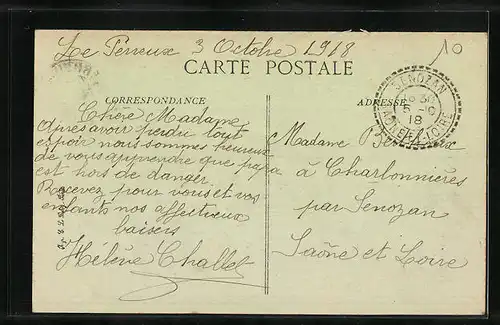 Le Perreux 3 Octobre 1918
10
CARTE POSTALE
CORRESPONDANCE
ADRESSE
SENOZAN
5
18
SAONE-ET-LOIRE
Chère Madame
Après avoir perdu tout
espoir nous sommes heureux
de vous apprendre que papa
est hors de danger.
Recevez pour vous et vos
enfants nos affectueux
baisers
Hélène Challet
Madame
à Charbonnières
par Senozan
Saône et Loire